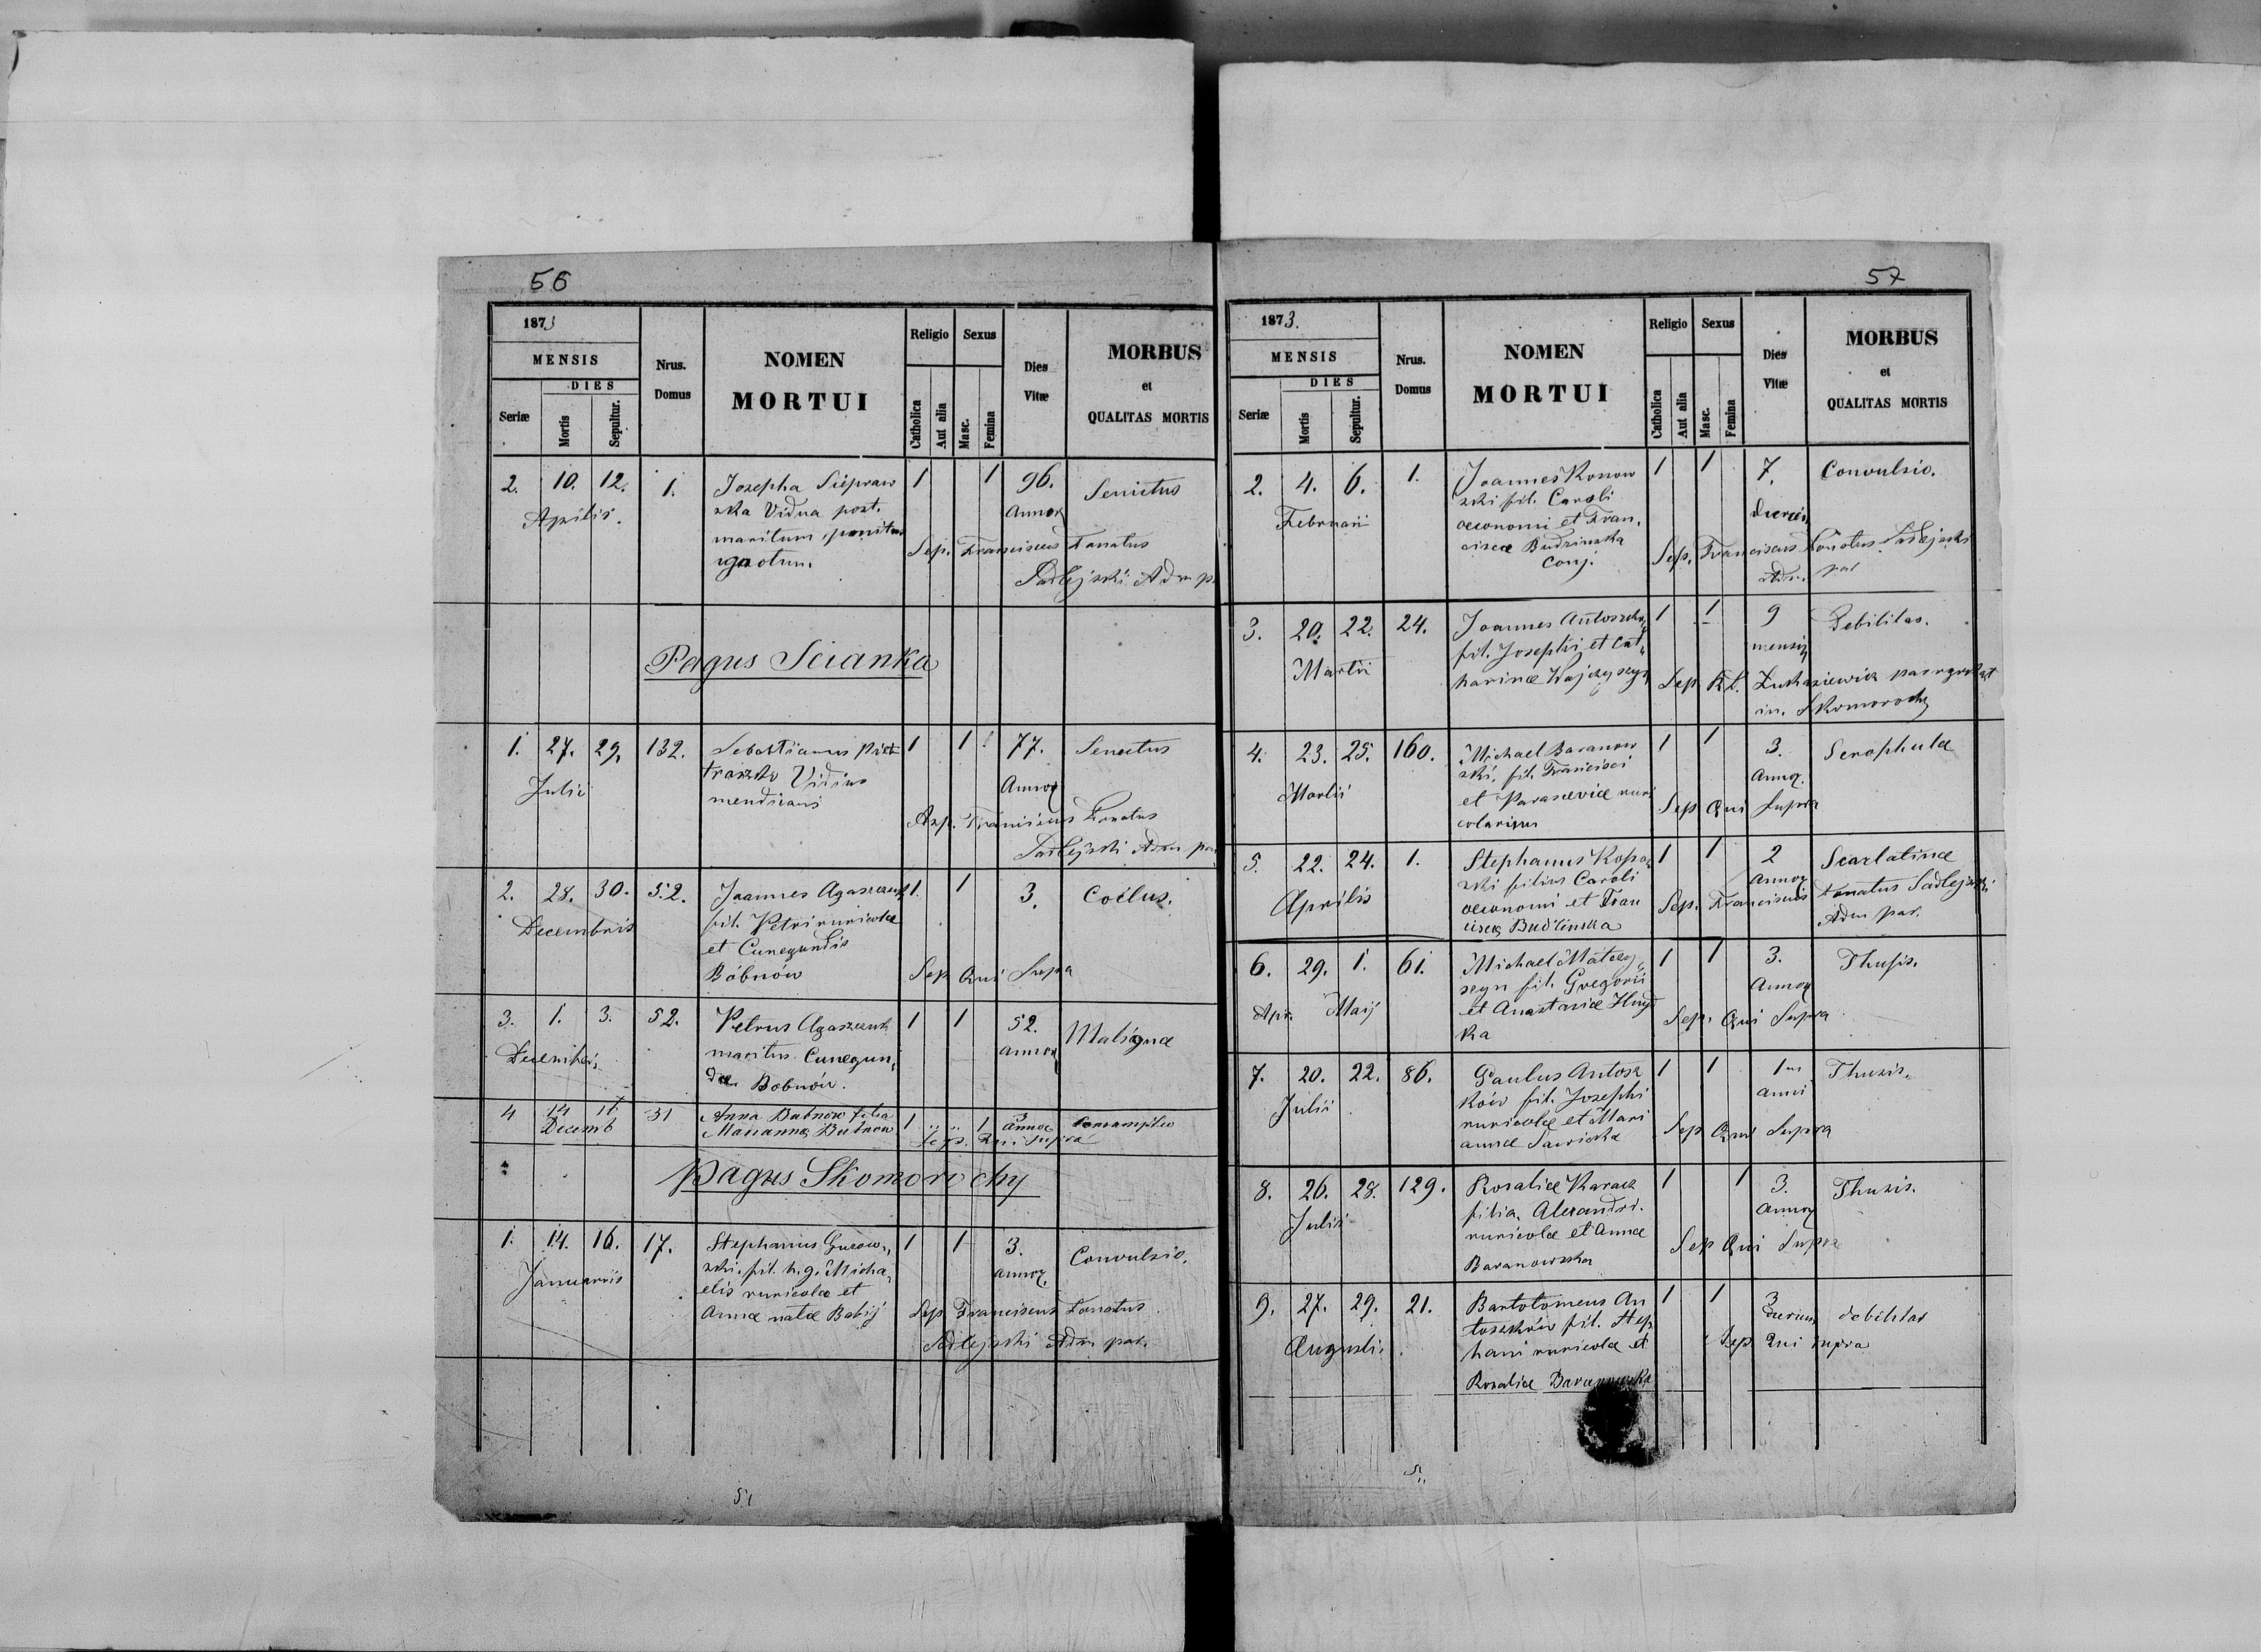 56
1873
MENSIS
DIES
Seriæ
Mortis
Sepultur.
Nrus.
Domus
NOMEN
MORTUI
Religio
Catholica
Aut alia
Sexus
Masc.
Femina
Dies
Vitæ
MORBUS
et
QUALITAS MORTIS
2. 10. 12. 1. Josepha Siepraw 1 1 96. Senictus
Aprilis. ska Vidua post. Annor
maritum, penitus
ignotum. Sep. Franciscus Donatus
Sadlejski Adm p.
Pagus Scianka
1. 27. 29. 132. Sebastianus Piet 1 1 77. Senectus
Julii traszko Viduus Annor
mendicans
Sep. Franciscus Donatus
Sadlejski Adm par
2. 28. 30. 52. Joannes Agaszczuk 1. 1 3.
Decembris fil. Petri ruricolæ
et Cunegundis
Bóbnów Sep Qui Supra
3. 1. 3. 52. Petrus Agaszczuk 1 1 52. Malignæ
Decembris maritus Cunegun, annor
dæ Bobnów.
4 14 16 31 Anna Bubnow filia 1 1 3 Consumptio
Decemb Mariannæ Bubnow annor
Sep. Qui supra
Pagus Skomorochy
1. 14. 16. 17. Stephanus 1 1 3. Convulsio.
Januariis ski. fil. h. g. Micha, annor.
elis ruricolæ et
Annæ natæ Babij Sep Franciscus Donatus
Sadlejski Adm par.
57
1873.
MENSIS
DIES
Seriæ
Mortis
Sepultur.
Nrus.
Domus
NOMEN
MORTUI
Religio
Catholica
Aut alia
Sexus
Masc.
Femina
Dies
Vitæ
MORBUS
et
QUALITAS MORTIS
2. 4. 6. 1. Joannes Kossow 1 1 7. Convulsio.
Februarii ski fil. Caroli dierum
oeconomi et Fran,
ciscæ Budzinska Sep. Franciscus Donatus Sadlejski
Conj. Adm. par
3. 20. 22. 24. Joannes Antoszków 1 1 9 Debilitas.
Martii fil. Josephi et Cat, mensium
harinæ Sep R. L. Lukasiewicz
in. Skomorochy
4. 23. 25. 160. Michael Baranow 1 1 3. Scrophulæ
Martii ski, fil. Francisci Annor.
et Parasceviæ ruri Sep Qui Supra
colarum
5. 22. 24. 1. Stephanus 1 1 2 Scarlatinæ
Aprilis ski filius Caroli Annor
oeconomi et Fran Sep. Franciscus Donatus Sadlejski
ciscæ Budzinska Adm par.
6. 29. 1. 61. Michael 1 1 3. Thusis.
Apr. Maij fil. Gregorii Annor
et Anastasiæ Sep. Qui Supra
ka
7. 20. 22. 86. Paulus Antosz 1 1 1us Thusis.
Julii ków fil. Josephi anni
ruricolæ et Mari
annæ Sawicka Sep Qui Supra
8. 26. 28. 129. Rosalia Karacz 1 1 3. Thusis.
Julii filia. Alexandri. annor
ruricolæ et Annæ
Baranowska Sep Qui Supra
9. 27. 29. 21. Bartolomeus An 1 1 3 debilitas
Augusti. toszków fil. Step dierum
hani ruricolæ et Sep Qui supra
Rosaliæ Baranowska